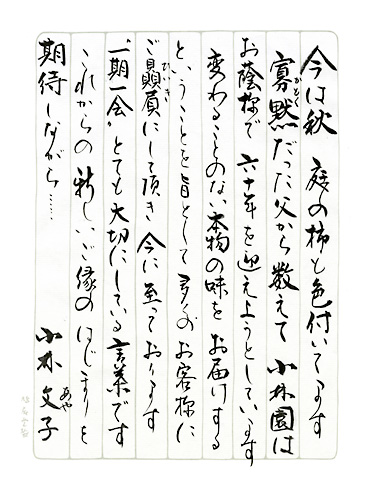 今は秋 庭の柿も色付いてます
寡黙だった父から数えて 小林園は
かもく
お蔭様で 六十年を迎えようとしています
変わることのない本物の味を お届けする
ということを旨として 多くのお客様に
ご贔屓にして頂き 今に至っております
ひいき
"一期一会" とても大切にしている言葉です
これからの新しいご縁のはじまりを
期待しながら……
小林文子
あや